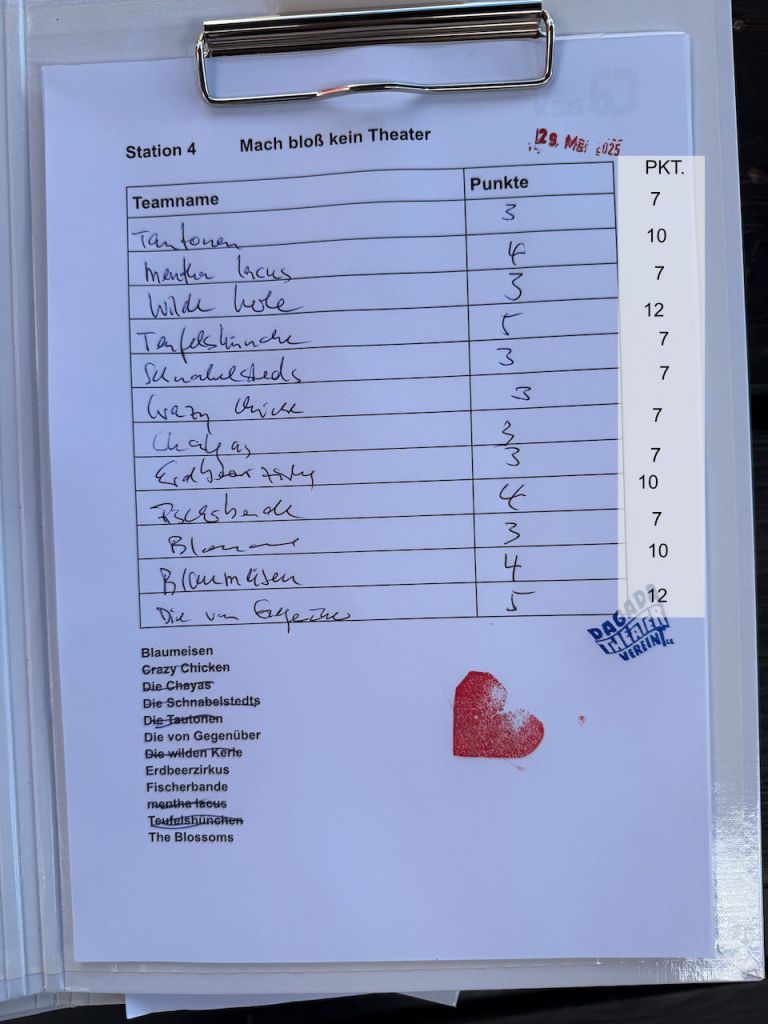 Station 4 Mach bloß kein Theater
29. Mai 2025
PKT.
Teamname Punkte
Tautonen 3 7
mentha lacus 4 10
Wilde 3 7
Teufelshünche 5 12
Schnabelsteds 3 7
Crazy 3 7
Chayas 3 7
Erdbeerzirkus 3 7
Fischbande 4 10
3 7
Blaumeisen 4 10
Die von Gegenüber 5 12
DAGADA
THEATER
VEREINT
Blaumeisen
Crazy Chicken
Die Chayas
Die Schnabelstedts
Die Tautonen
Die von Gegenüber
Die wilden Kerle
Erdbeerzirkus
Fischerbande
mentha lacus
Teufelshünchen
The Blossoms